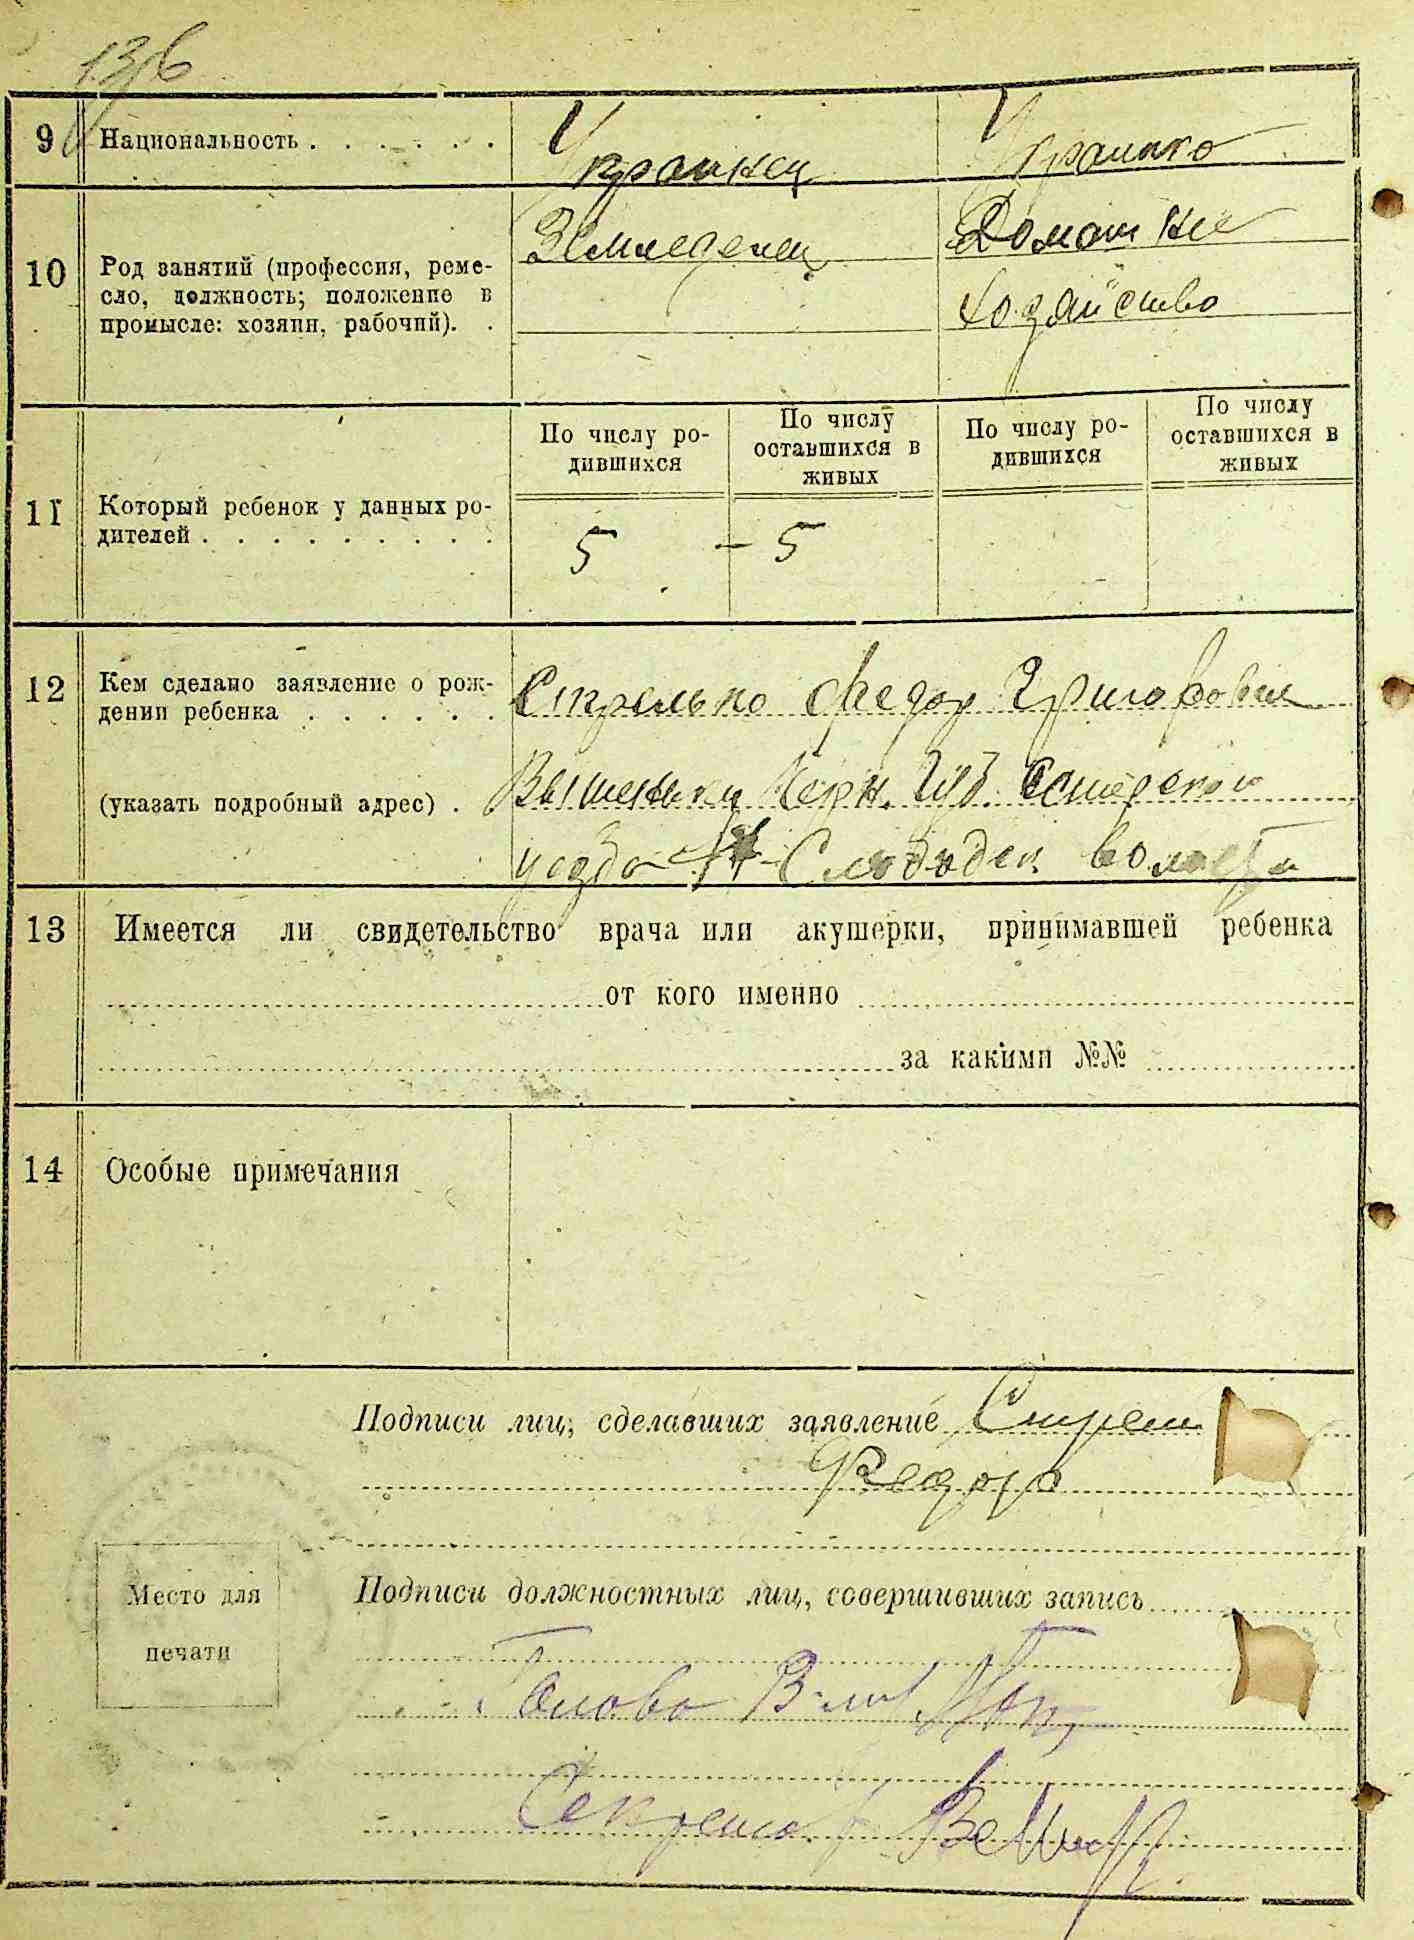 136
9 Национальность . . . . . . Украинец Украинка
10 Род занятий (профессия, реме-
сло, должность; положение в
промысле: хозяин, рабочий). .
Земледелец
Домашнее
хозяйство
По числу ро-
дившихся
По числу
оставшихся в
живых
По числу ро-
дившихся
По числу
оставшихся в
живых
11 Который ребенок у данных ро-
дителей . . . . . . . . . .
5 - 5
12 Кем сделано заявление о рож-
дении ребенка . . . . . .
(указать подробный адрес) .
Стрелько Федор Григорович
Вышеньки Черн. Губ. Остерског
уезда Слободск волости
13 Имеется ли свидетельство врача или акушерки, принимавшей ребенка
от кого именно
за какими №№
14 Особые примечания
Подписи лиц, сделавших заявление Стрел
Федор
Подписи должностных лиц, совершивших запись
Место для
печати
Голова
Секретар